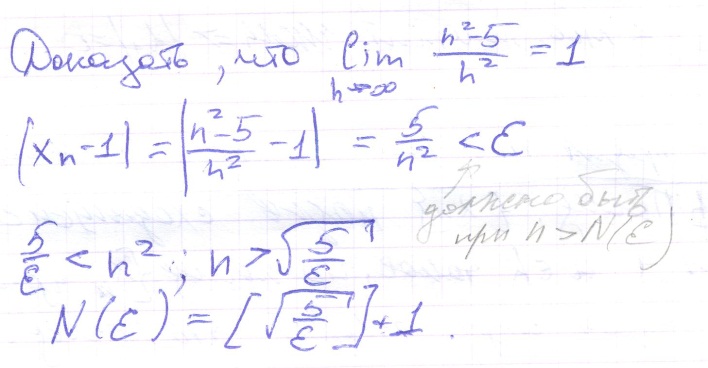 Доказать, что lim n→∞ (n²-5)/n² = 1
|xₙ-1| = |(n²-5)/n² - 1| = 5/n² < ε
должно быть
при n > N(ε)
5/ε < n² ; n > √(5/ε)
N(ε) = [√(5/ε)] + 1.